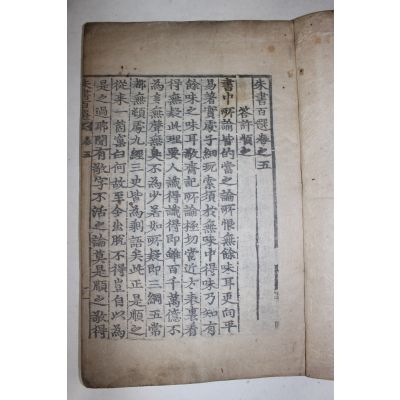 朱書百選卷之五
答許順之
書中所諭皆的當之論所恨無餘味耳更向平
易著實處子細玩索須於無味中得味乃知有
餘味之味耳敬齋記所論極切當近方表裏看
得無疑此理要人識得識得即雖百千萬億不
爲多無聲無臭不爲少若如所疑即三綱五常
都無頓處九經三史皆爲剩語矣此正是順之
從來一箇窠臼何故至今出脫不得豈自以爲
是之過耶聞有敬字不活之論莫是順之敬得
朱書百選 卷五